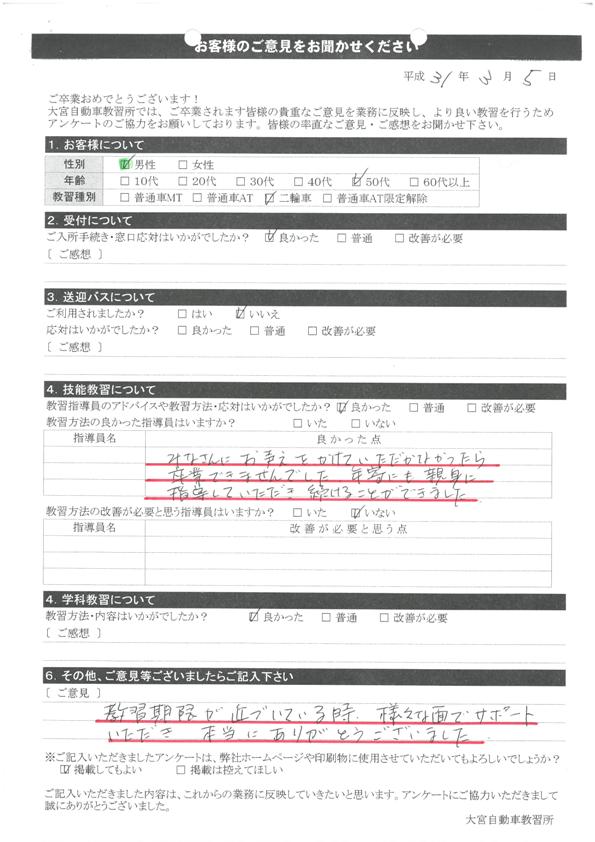 お客様のご意見をお聞かせください
平成 31 年 3 月 5 日
ご卒業おめでとうございます！
大宮自動車教習所では、ご卒業されます皆様の貴重なご意見を業務に反映し、より良い教習を行うため
アンケートのご協力をお願いしております。皆様の率直なご意見・ご感想をお聞かせ下さい。
1. お客様について
性別 ☑男性 □女性
年齢 □10代 □20代 □30代 □40代 ☑50代 □60代以上
教習種別 □普通車MT □普通車AT ☑二輪車 □普通車AT限定解除
2. 受付について
ご入所手続き・窓口応対はいかがでしたか？ ☑良かった □普通 □改善が必要
〔ご感想〕
3. 送迎バスについて
ご利用されましたか？ □はい ☑いいえ
応対はいかがでしたか？ □良かった □普通 □改善が必要
〔ご感想〕
4. 技能教習について
教習指導員のアドバイスや教習方法・応対はいかがでしたか？ ☑良かった □普通 □改善が必要
教習方法の良かった指導員はいますか？ □いた □いない
指導員名 良かった点
みなさんに お声えをかけていただかなかったら
卒業できませんでした 年寄にも 親身に
指導していただき 続けることができました
教習方法の改善が必要と思う指導員はいますか？ □いた ☑いない
指導員名 改善が必要と思う点
4. 学科教習について
教習方法・内容はいかがでしたか？ ☑良かった □普通 □改善が必要
〔ご感想〕
6. その他、ご意見等ございましたらご記入下さい
〔ご意見〕
教習期限が 近づいている時、様々な面でサポート
いただき 本当に ありがとうございました
※ご記入いただきましたアンケートは、弊社ホームページや印刷物に使用させていただいてもよろしいでしょうか？
☑掲載してもよい □掲載は控えてほしい
ご記入いただきました内容は、これからの業務に反映していきたいと思います。アンケートにご協力いただきまして
誠にありがとうございました。
大宮自動車教習所